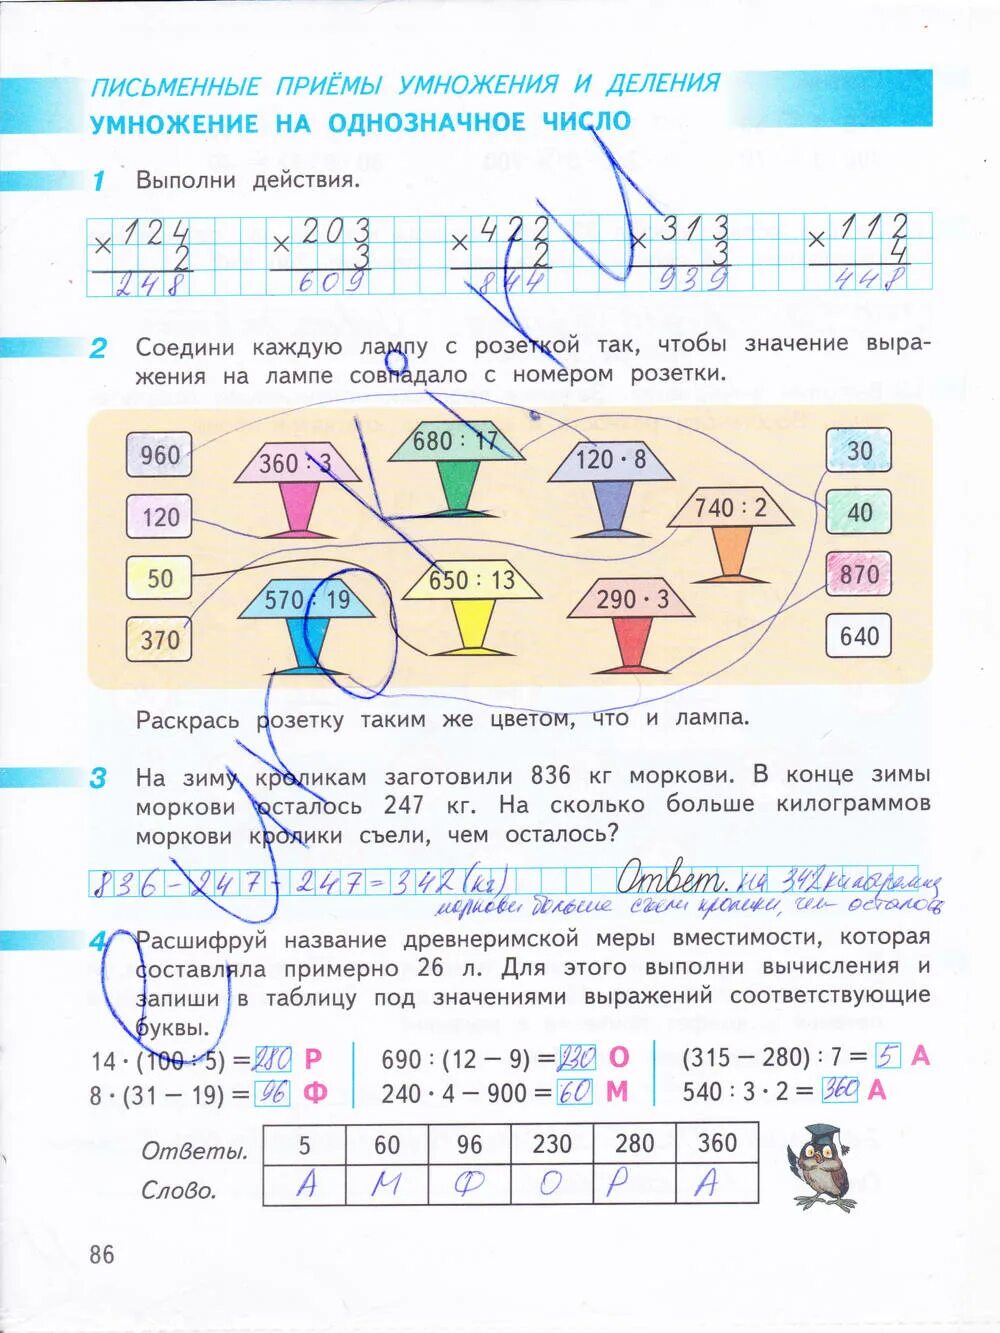 ПИСЬМЕННЫЕ ПРИЁМЫ УМНОЖЕНИЯ И ДЕЛЕНИЯ
УМНОЖЕНИЕ НА ОДНОЗНАЧНОЕ ЧИСЛО
1 Выполни действия.
×124 ×203 ×422 ×313 ×112
2 3 2 3 4
248 609 844 939 448
2 Соедини каждую лампу с розеткой так, чтобы значение выра-
жения на лампе совпадало с номером розетки.
960 360 : 3 680 : 17 120 · 8 30
120 740 : 2 40
50 570 : 19 650 : 13 290 · 3 870
370 640
Раскрась розетку таким же цветом, что и лампа.
3 На зиму кроликам заготовили 836 кг моркови. В конце зимы
моркови осталось 247 кг. На сколько больше килограммов
моркови кролики съели, чем осталось?
836-247-247=342(кг) Ответ. на 342
моркови больше съели кролики, чем осталось
4 Расшифруй название древнеримской меры вместимости, которая
составляла примерно 26 л. Для этого выполни вычисления и
запиши в таблицу под значениями выражений соответствующие
буквы.
14 · (100 : 5) = 280 Р 690 : (12 − 9) = 230 О (315 − 280) : 7 = 5 А
8 · (31 − 19) = 96 Ф 240 · 4 − 900 = 60 М 540 : 3 · 2 = 360 А
Ответы. 5 60 96 230 280 360
Слово. А М Ф О Р А
86